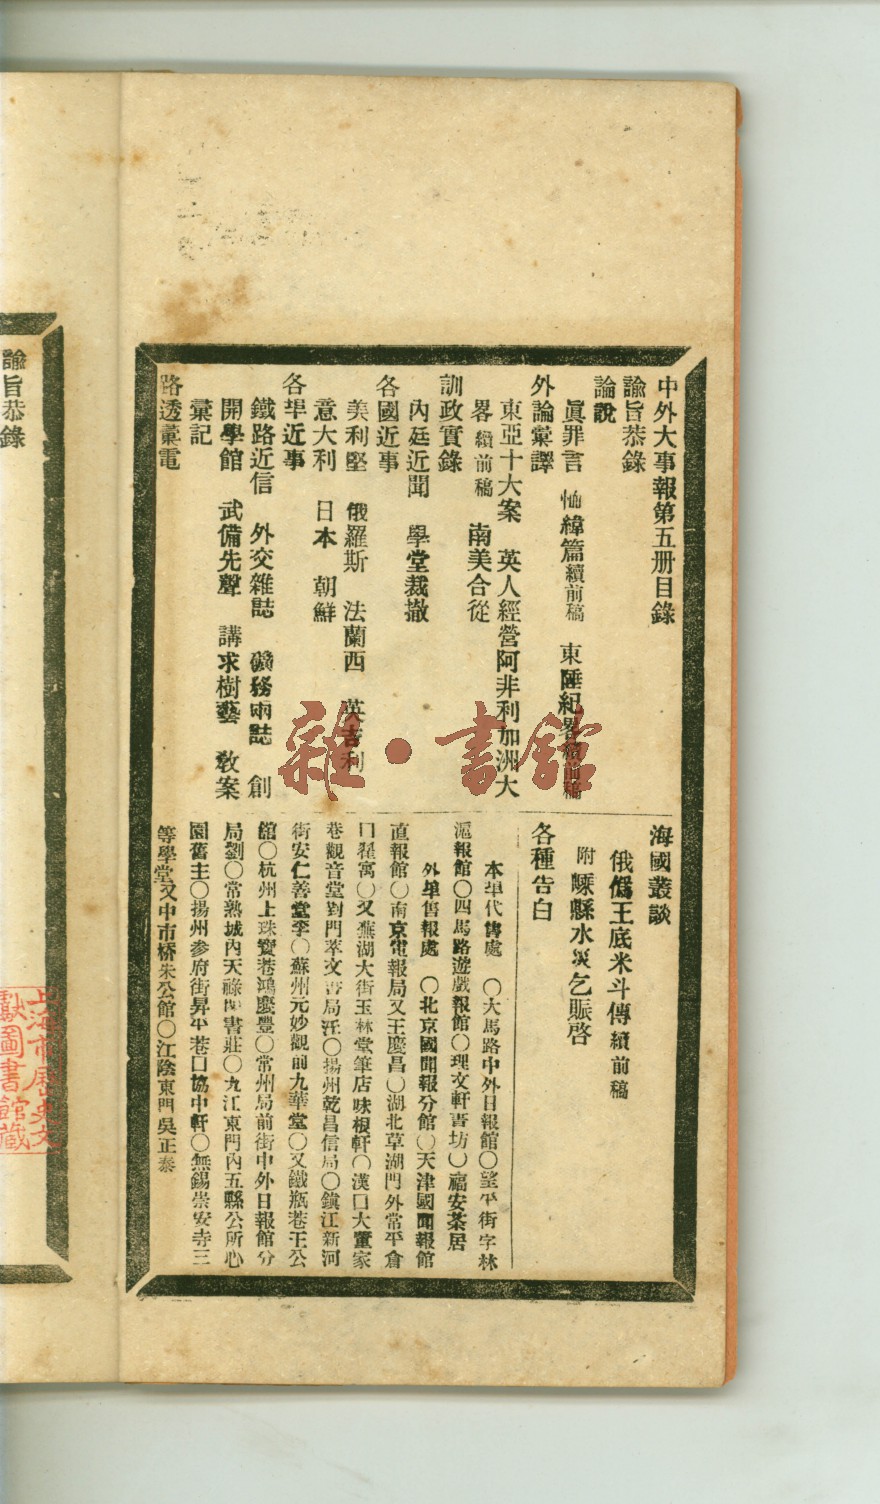 中外大事報第五册目錄
諭旨恭錄
論說
眞罪言 恤緯篇續前稿 東陲紀畧續前稿
外論彙譯
東亞十大案 英人經營阿非利加洲大
畧續前稿 南美合從
訓政實錄
內廷近聞 學堂裁撤
各國近事
美利堅 俄羅斯 法蘭西 英吉利
意大利 日本 朝鮮
各埠近事
鐵路近信 外交雜誌 礦務兩誌 創
開學館 武備先聲 講求樹藝 敎案
彙記
路透彙電
海國叢談
俄僞王底米斗傳續前稿
附 嵊縣水災乞賑啓
各種告白
本埠代售處 〇大馬路中外日報館〇望平街字林
滬報館〇四馬路遊戲報館〇理文軒書坊〇福安茶居
外埠售報處 〇北京國聞報分館〇天津國聞報館
直報館〇南京電報局又王慶昌〇湖北草湖門外常平倉
口翟寓〇又蕪湖大街玉林堂筆店味根軒〇漢口大董家
巷觀音堂對門萃文書局汪〇揚州乾昌信局〇鎭江新河
街安仁善堂李〇蘇州元妙觀前九華堂〇又鐵瓶巷王公
館〇杭州上珠寶巷鴻慶豐〇常州局前街中外日報館分
局劉〇常熟城內天祿閣書莊〇九江東門內五縣公所心
園舊主〇揚州參府街昇平巷口協中軒〇無錫崇安寺三
等學堂又中市桥朱公館〇江陰東門吳正泰
雜·書館
諭旨恭錄
上海市歷史文
獻圖書館藏